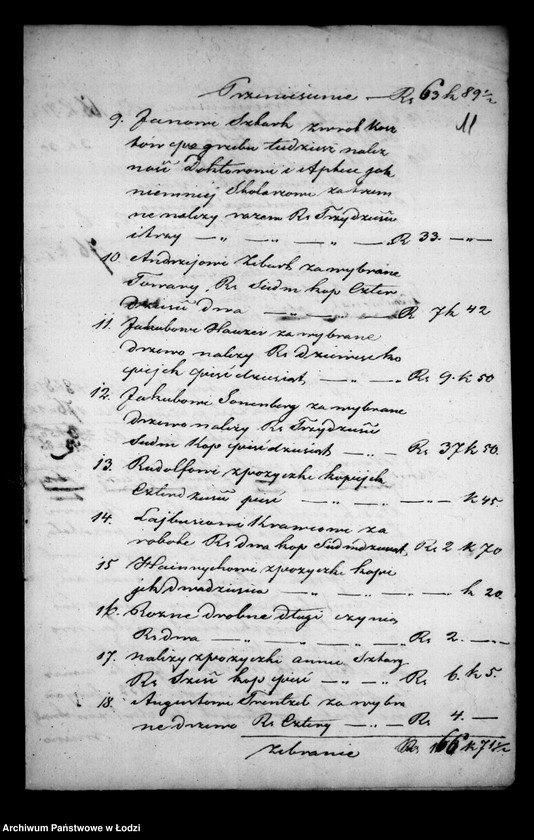 Przeniesienie — Rs 63 k 89 1/2
11
9. Janowi Sztark zwrot kosz
tów pogrzebu tudzież należ
ność Doktorowi i Aptece jak
niemniej Stolarzowi za trum
ne należy razem Rs Trzydzieści
i trzy — „ — „ — „ — R 33. — „ —
10 Andrzejowi Zebart za wybrane
Towary, Rs Siedm kop Czter
dzieści dwa — „ — „ — R 7 k 42
11. Jakubowi Hauzer za wybrane
drzewo należy Rs dziewięć ko
piejek pięćdziesiąt, — „ — Rs 9. k 50
12. Jakubowi Sonenberg za wybrane
drzewo należy Rs Trzydzieści
siedm kop pięćdziesiąt — „ Rs 37 k 50.
13. Rudolfowi z pożyczki kopiejek
Czterdzieści pięć — „ — „ — „ — k 45.
14. Lajbusiowi Krawcowi za
robote Rs dwa kop siedmdziesiąt, Rs 2 k 70
15 Hainrychowi z pożyczki kopie
jek dwadzieścia — „ — „ — „ — k 20.
16. Rożne drobne długi czynią
Rs dwa — „ — „ — „ — Rs 2. — „ —
17. należy z pożyczki annie Sztark
Rs Sześć kop pięć — „ — „ Rs 6. k 5.
18. Augustowi Trentzel za wybra
ne drzewo Rs Cztery — „ — Rs 4. —
Zebranie Rs 166 k 71 1/2
Archiwum Państwowe w Łodzi